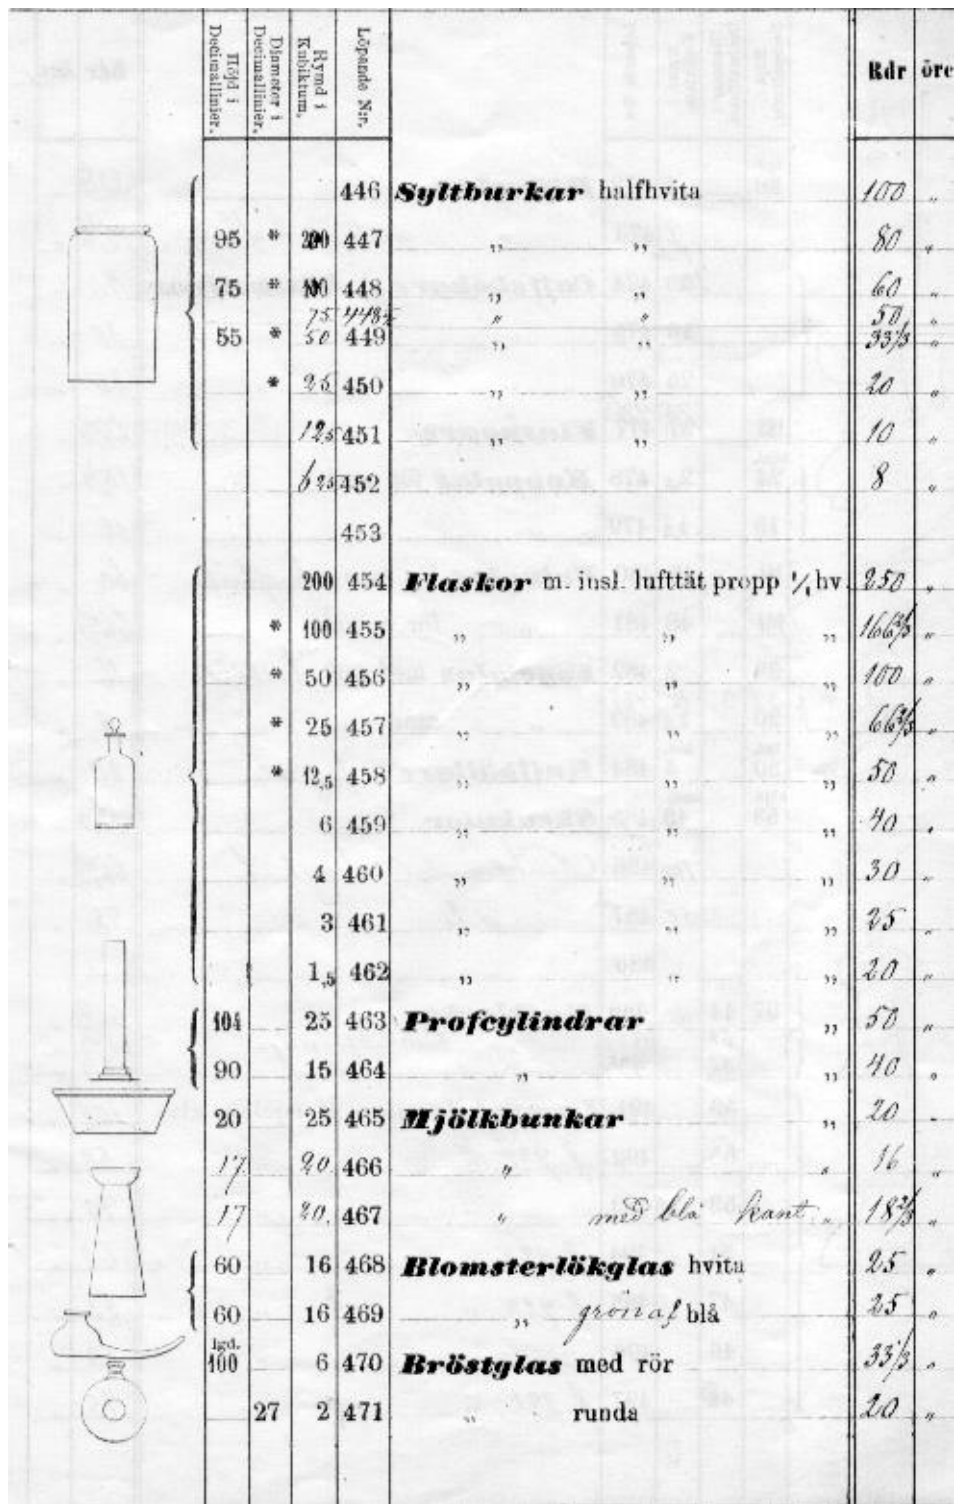 Höjd i Decimallinier. Diameter i Decimallinier. Rymd i Kubiktum. Löpande N:r. Rdr öre
446 Syltburkar halfhvita 100 „
95 * 200 447 „ „ 80 „
75 * 100 448 „ „ 60 „
75 448½ „ „ 50 „
55 * 50 449 „ „ 33⅓ „
* 25 450 „ „ 20 „
12,5 451 „ „ 10 „
6 25 452 8 „
453
200 454 Flaskor m. insl. lufttät propp 1/1 hv. 250 „
* 100 455 „ „ „ 166⅔ „
* 50 456 „ „ „ 100 „
* 25 457 „ „ „ 66⅔ „
* 12,5 458 „ „ „ 50 „
6 459 „ „ „ 40 „
4 460 „ „ „ 30 „
3 461 „ „ „ 25 „
1,5 462 „ „ „ 20 „
104 25 463 Profcylindrar „ 50 „
90 15 464 „ „ 40 „
20 25 465 Mjölkbunkar „ 20 „
17 20 466 „ „ 16 „
17 20 467 „ med blå kant „ 18⅔ „
60 16 468 Blomsterlökglas hvita 25 „
60 16 469 „ gröna blå 25 „
lgd. 100 6 470 Bröstglas med rör 33⅓ „
27 2 471 „ runda 20 „